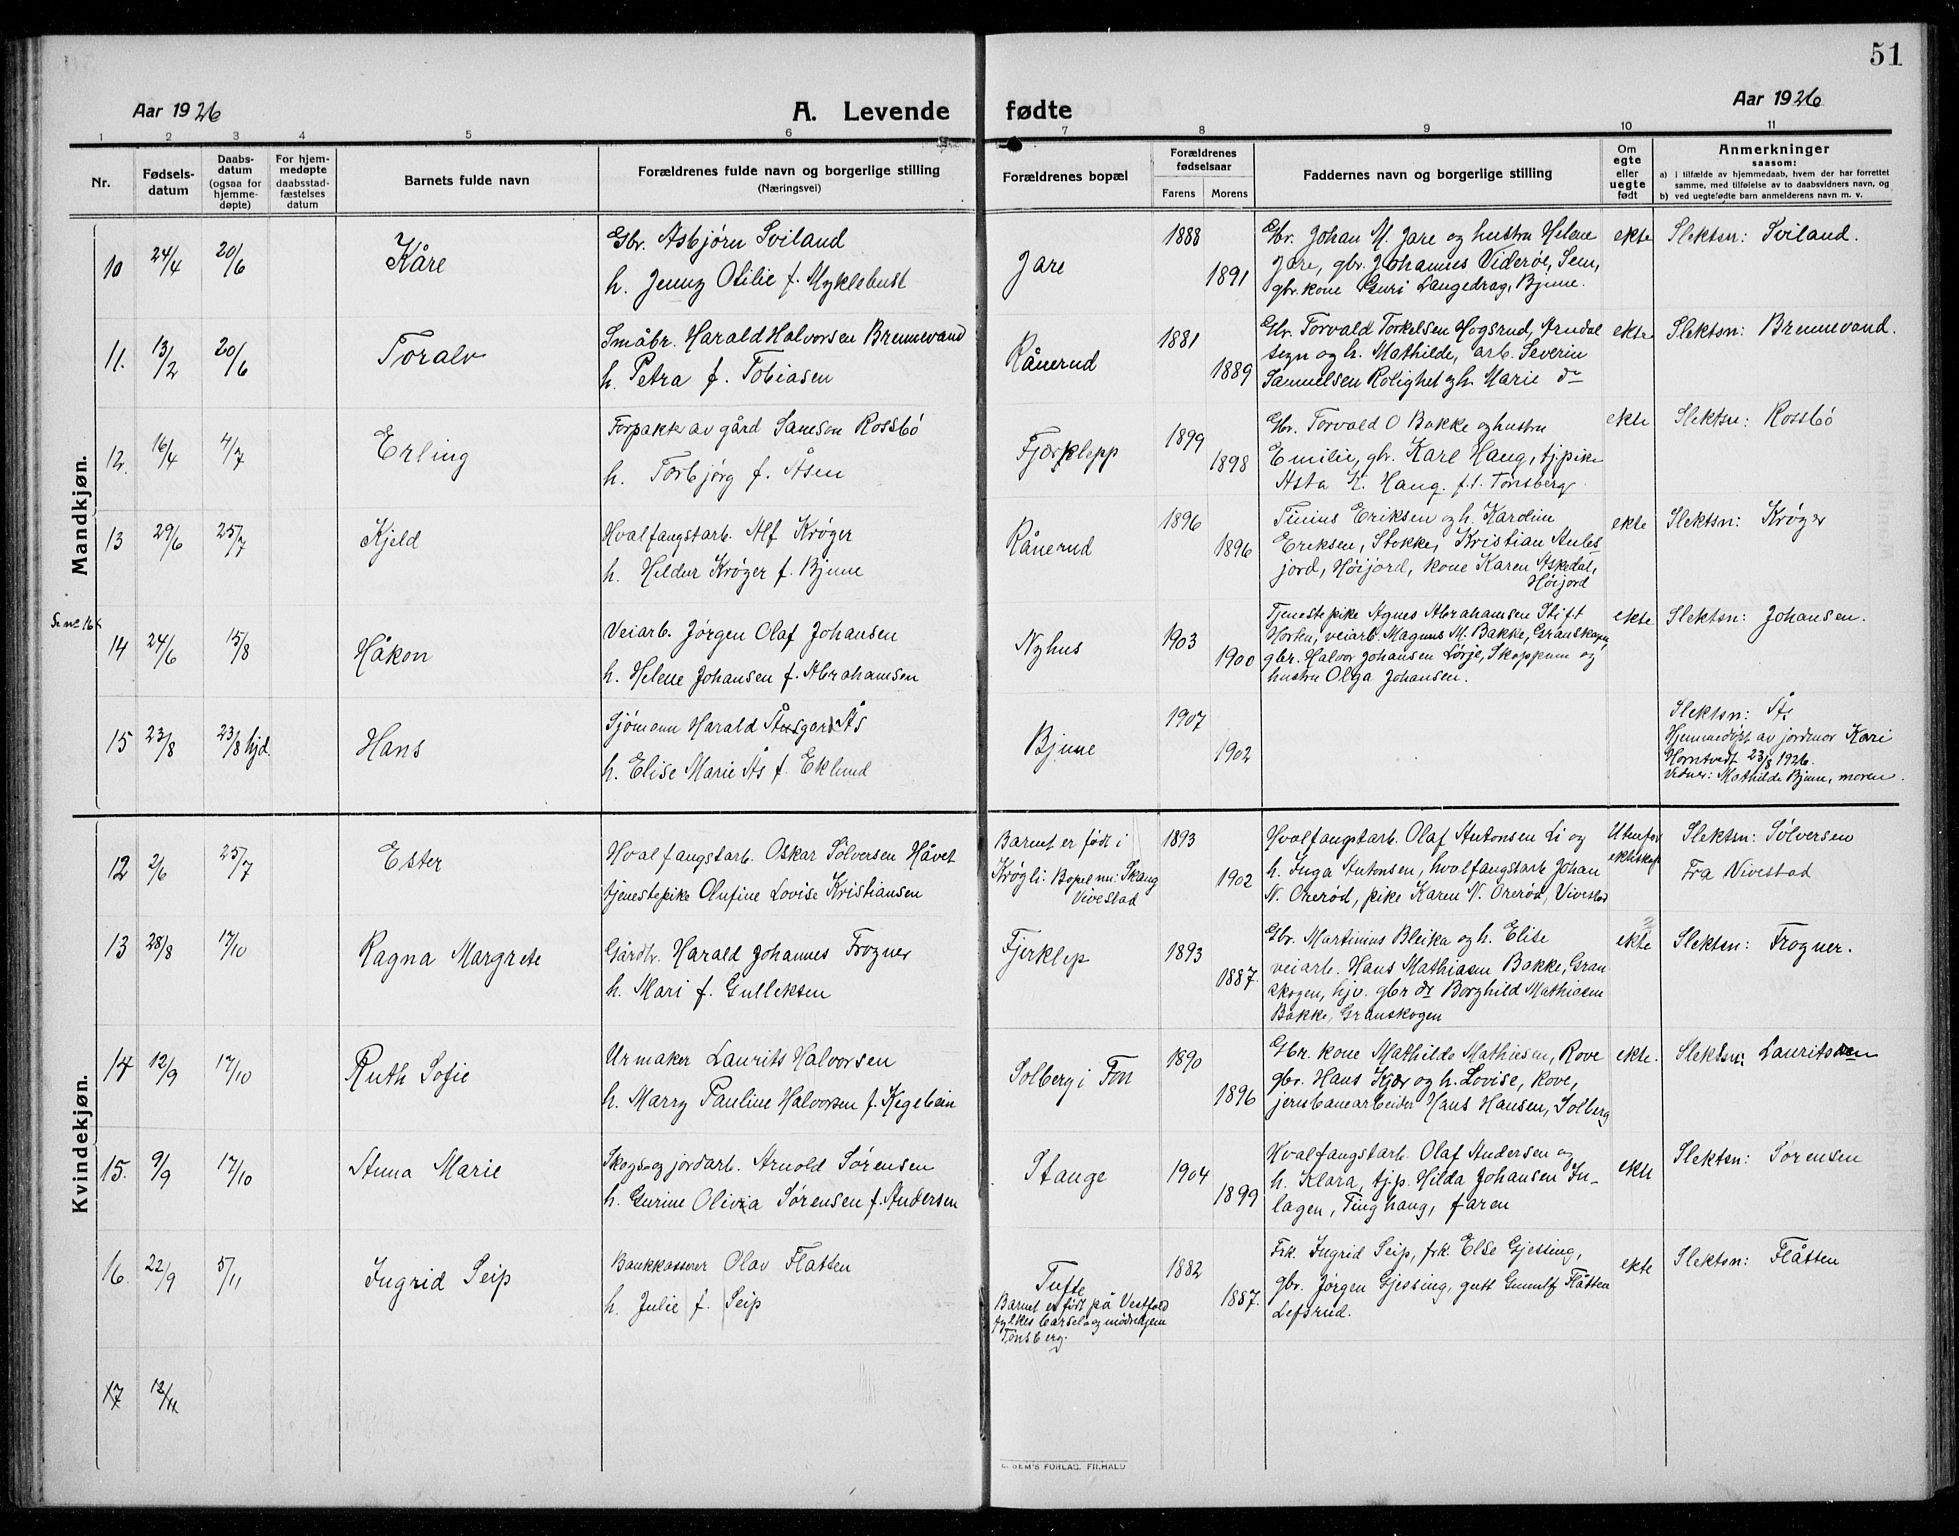 51
Aar 1926
A. Levende fødte
Aar 1926
1 2 3 4 5 6 7 8 9 10 11
Nr.
Fødsels-
datum
Daabs-
datum
(ogsaa for
hjemme-
døpte)
For hjem-
medøpte
daabsstad-
fæstelses
datum
Barnets fulde navn
Forældrenes fulde navn og borgerlige stilling
(Næringsvei)
Forældrenes bopæl
Forældrenes
fødselsaar
Farens Morens
Faddernes navn og borgerlige stilling
Om
egte
eller
uegte
født
Anmerkninger
saasom:
a) i tilfælde av hjemmedaab, hvem der har forrettet
samme, med tilføielse av to daabsvidners navn, og
b) ved uegtefødte barn anmelderens navn m. v.
Mandkjøn.
10 24/4 20/6 Kåre
Gbr. Asbjørn Sviland
h. Jenny Otilie f. Myklebust
Jare
1888
1891
Gbr. Johan M. Jare og hustru Helene
Jare, gbr. Johannes Viderøe, Sem,
gbr. kone Guri Langedrag, Bjune.
ekte
Slektsn: Sviland.
11. 13/2 20/6 Toralv
Småbr. Harald Halvorsen Brennevand
h. Petra f. Tobiasen
Rånerud
1881
1889
Gbr. Torvald Torkelsen Hogsrud, Arndal
segn og h. Mathilde, arb. Severin
Samuelsen Rolighet og h. Marie do
ekte
Slektsn: Brennevand.
12. 16/4 4/7 Erling
Forpakter av gård Samson Rossbö
h. Torbjørg f. Åsen
Fjærklepp
1899
1898
Gbr. Torvald O Bakke og hustru
Emilie, gbr. Karl Haug, tj.pike
Asta K. Haug. f.t. Tønsberg
ekte
Slektsn: Rossbö
13 29/6 25/7 Kjeld
Hvalfangstarb. Alf Krøger
h. Hildur Krøger f. Bjune
Rånerud
1896
1896
Tinius Eriksen og h. Kardine
Eriksen, Stokke, Kristian Aules-
jord, Høijord, kone Karen Askedal,
Høijord
ekte
Slektsn: Krøger
Se nr 16
14 24/6 15/8 Håkon
Veiarb. Jørgen Olaf Johansen
h. Helene Johansen f. Abrahamsen
Nyhus
1903
1900
Tjenestepike Agnes Abrahamsen Stift
Horten, veiarb. Magnus M. Bakke, Granskogen,
gbr. Halvor Johansen Lørje, Skoppum og
hustru Olga Johansen.
ekte
Slektsn: Johansen.
15 23/8 23/8 hjd. Hans
Sjømann Harald Åsgard Ås
h. Elise Marie Ås f. Eklund
Bjune
1907
1902
Slektsn: Ås
Hjemmedøpt av jordmor Kari
Horntvedt 23/8 1926.
Vidner: Mathilde Bjune, moren.
Kvindekjøn.
12 2/6 25/7 Ester
Hvalfangstarb. Oskar Sölversen Håvet
tjenestepike Olufine Lovise Kristiansen
Barnet er født i
Krøgli: Bopel nu: Skaug
Vivestad
1893
1902
Hvalfangstarb. Olaf Antonsen Li og
h. Inga Antonsen, hvalfangstarb Johan
N. Orerød, pike Karen N. Orerød, Vivestad
Utenfor
ekteskap
Slektsn: Sølversen
Fra Vivestad
13 28/8 17/10 Ragna Margrete
Gårdbr. Harald Johannes Frogner
h. Mari f. Gulleksen
Fjerklep
1893
1887.
Gbr. Martinius Bleika og h. Elise
veiarb. Hans Mathiasen Bakke, Gran
skogen, hjv. gbr dr Borghild Mathiasen
Bakke, Granskogen
ekte
Slektsn: Frogner.
14 12/9 17/10 Ruth Sofie
Urmaker Laurits Halvorsen
h. Marry Pauline Halvorsen f. Kegelbein
Solberg i Fon
1890
1896
Gbr. kone Mathilde Mathisen, Rove
gbr. Hans Kjær og h. Lovise, Rove,
jernbanearbeider Hans Hansen, Solberg
ekte.
Slektsn: Lauritsen
15. 9/9 17/10 Anna Marie
Skogs- og jordarb. Arnold Sørensen
h. Gurine Olivia Sørensen f. Andersen
Stange
1904
1899
Hvalfangstarb. Olaf Andersen og
h. Klara, tj.p. Hilda Johansen In-
lagen, Tinghaug, faren
ekte
Slektsn: Sørensen
16. 22/9 5/11 Ingrid Seip
Bankkasserer Olav Flatten
h. Julie f. Seip
Tufte
Barnet er født på Vestfold
fylkes barsel- og mødrehjem
Tønsberg.
1882
1887.
Frk. Ingrid Seip, frk. Else Gjessing,
gbr. Jørgen Gjessing, gutt Gunulf Flåtten
Lefsrud.
ekte
Slektsn: Flåtten
17 12/11
SEM'S FORLAG. FR.HALD